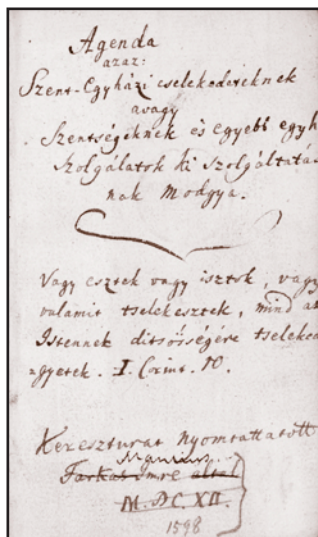 Agenda
azaz:
Szent-Egyházi cselekedeteknek
avagy
Szentségeknek és egyebb egyh
Szolgálatok ki Szolgáltatá-
nak Modgya.
Vagy esztek vagy isztok, vagy
valamit tselekesztek, mind az
Istennek ditsősségére tseleked
ngyetek. I. Corint. 10.
Kereszturat Nyomtattatott
Manlius
Farkas Imre altal
M.DC.XII.
1598